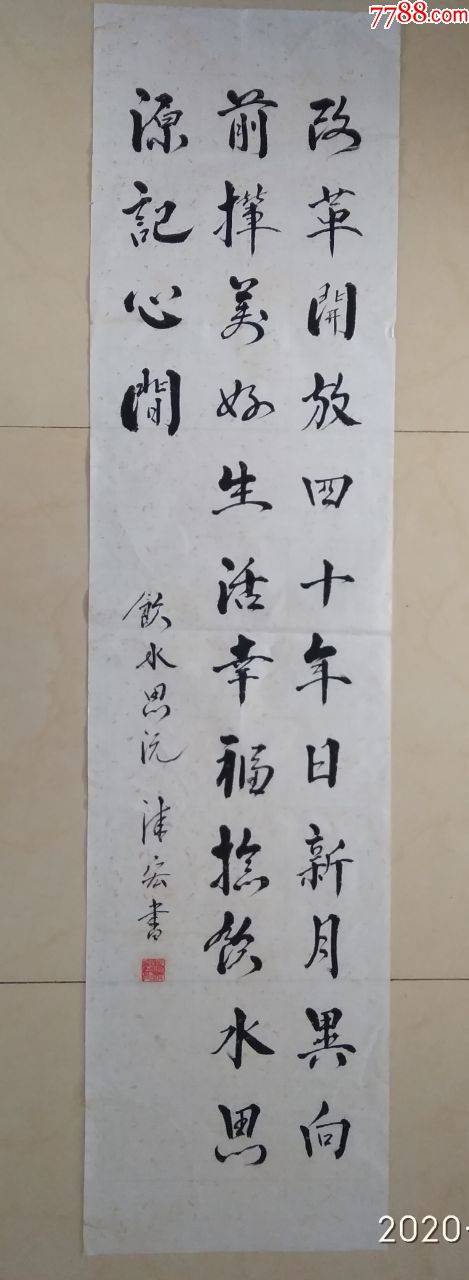 7788.com
改革開放四十年日新月異向
前撵美好生活幸福捻飲水思
源記心間
飲水思沅 浦宏書
2020-